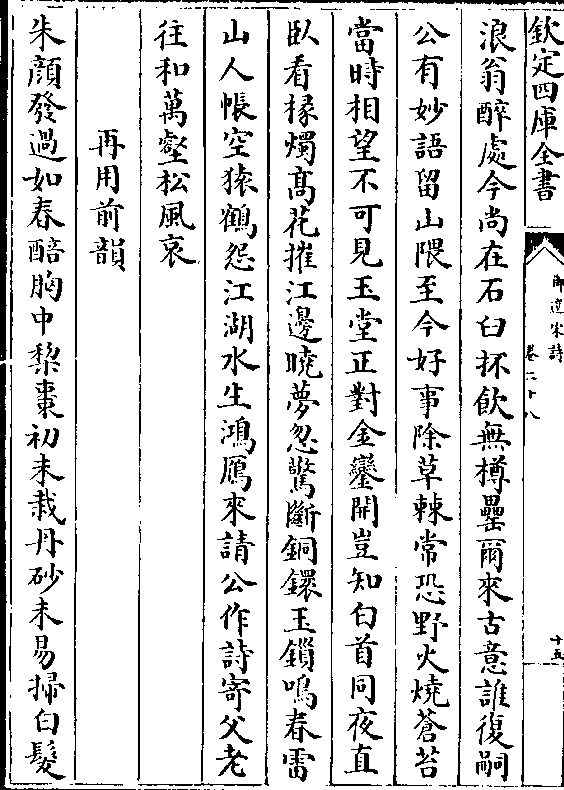 欽定四庫全書
御選宋詩
卷二十八
十五
浪翁醉處今尚在石臼抔飲無樽罍爾來古意誰復嗣
公有妙語留山隈至今好事除草棘常恐野火燒蒼苔
當時相望不可見玉堂正對金鑾開豈知白首同夜直
臥看椽燭高花摧江邊曉夢忽驚斷銅鐶玉鎖鳴春雷
山人帳空猿鶴怨江湖水生鴻鴈來請公作詩寄父老
往和萬壑松風哀
再用前韻
朱顔發過如春醅胸中棃棗初未栽丹砂未易掃白髮